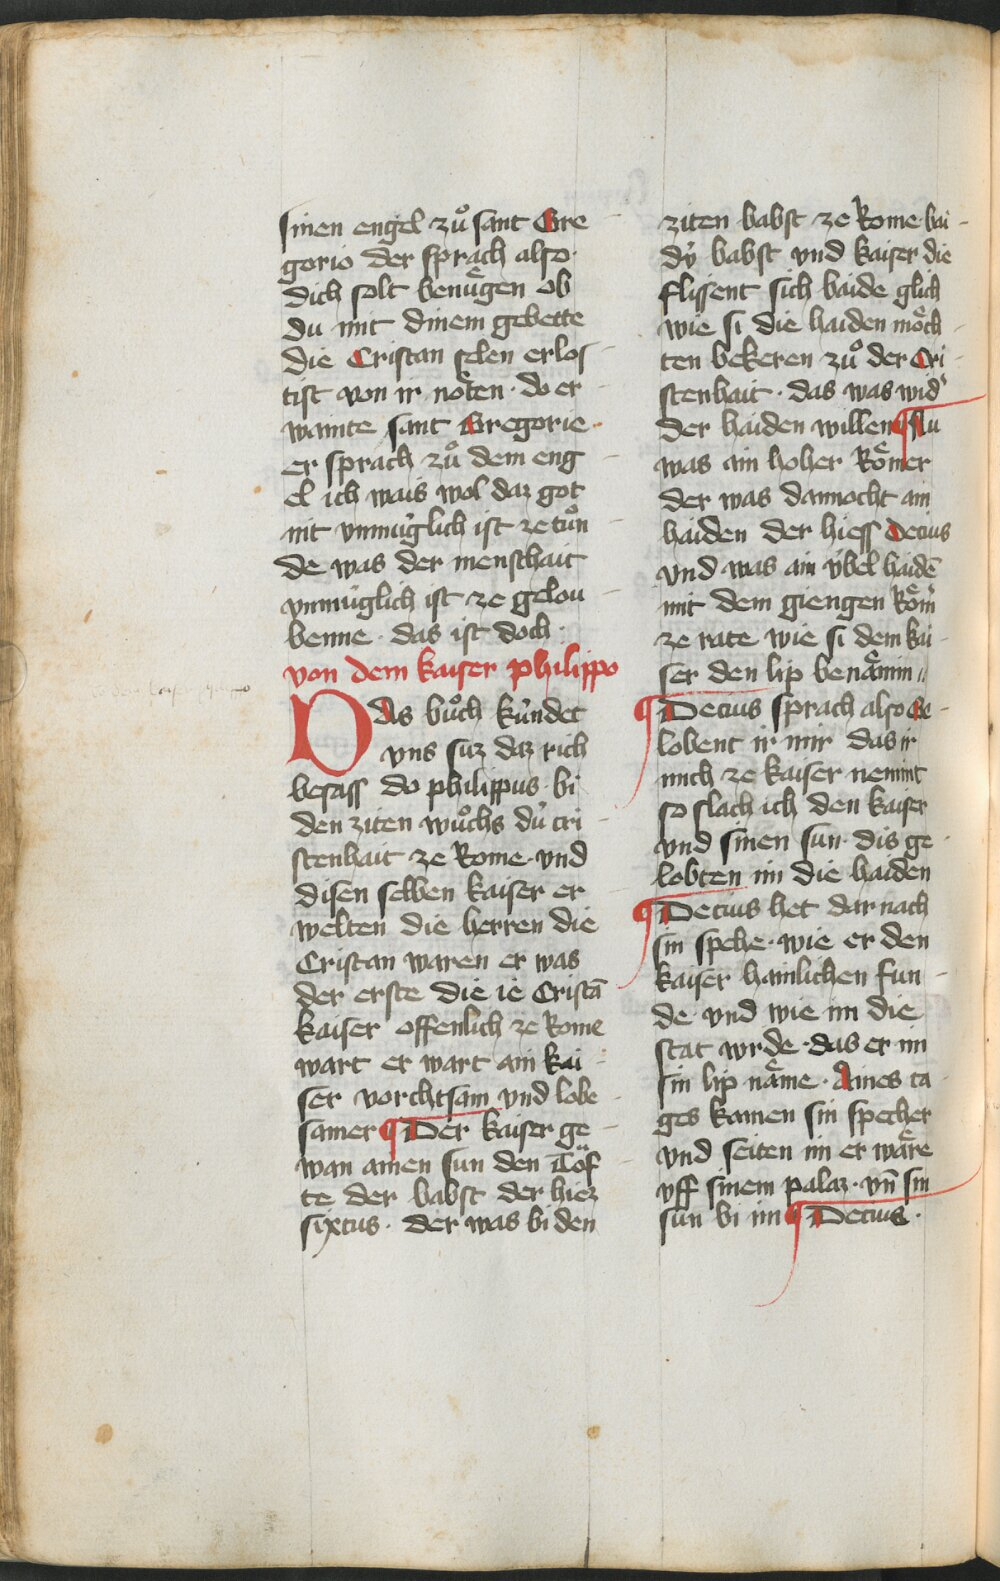 sinen engel zuͦ sant Gre
gorio der sprach also·
dich solt benuͤgen ob
du mit dinem gebette
die Cristan selen erlos
tist von ir noͤten · do er
wainte sant Gregorie·
er sprach zuͦ dem eng
el ich wais wol daz got
nit vnmüglich ist ze tuͦn
de was der menschait
vnmüglich ist ze gelou
benne · das ist doch·
von dem kaiser philippo
Das buͦch kündet
vns suz daz rich
besass do philippus · bi
den ziten wuͦchs dü cri
stenhait ze Rome · vnd
disen selben kaiser er
welten die herren die
Cristan waren er was
der erste die ie Cristā
kaiser offenlich ze Rome
wart er wart ain kai
ser vorchtsam vnd lobe
samer ¶ Der kaiser ge
wan ainen sun den Toͤf
te der babst der hiez
sixtus · der was bi den
ziten babst ze Rome · bai
dü babst vnd kaiser die
flissent sich baide glich
wie si die haiden moͤch
ten bekeren zuͦ der Cri
stenhait · das was wid'
der haiden willen ¶ Nu
was ain hoher Roͤmer
der was dannocht ain
haiden der hiess Decius
vnd was ain übel haidē
mit dem giengen Roͤm'
ze rate wie si dem kai
ser den lip benaͤmin
¶ Decius sprach also Ge
lobent ir mir das ir
mich ze kaiser nemint
so slach ich den kaiser
vnd sinen sun · dis ge
lobten im die haiden
¶ Decius het dar nach
sin spehe · wie er den
kaiser hainlichen fun
de · vnd wie im die
stat wrde · das er im
sin lip naͤme · Aines ta
ges komen sin specher
vnd seiten im er waͤre
vff sinem palaz · vn̄ sin
sun bi im ¶ Decius ·